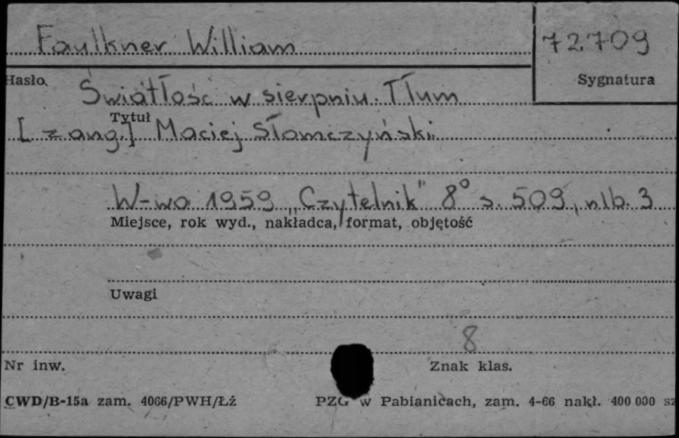 Faulkner William
72709
Hasło
Sygnatura
Światłość w sierpniu. Tłum
Tytuł
[z ang.] Maciej Słomczyński.
W-wa 1959 „Czytelnik" 8° s. 509, nlb. 3
Miejsce, rok wyd., nakładca, format, objętość
Uwagi
8
Nr inw.
Znak klas.
CWD/B-15a zam. 4066/PWH/Łź
PZG w Pabianicach, zam. 4-66 nakł. 400 000 sz